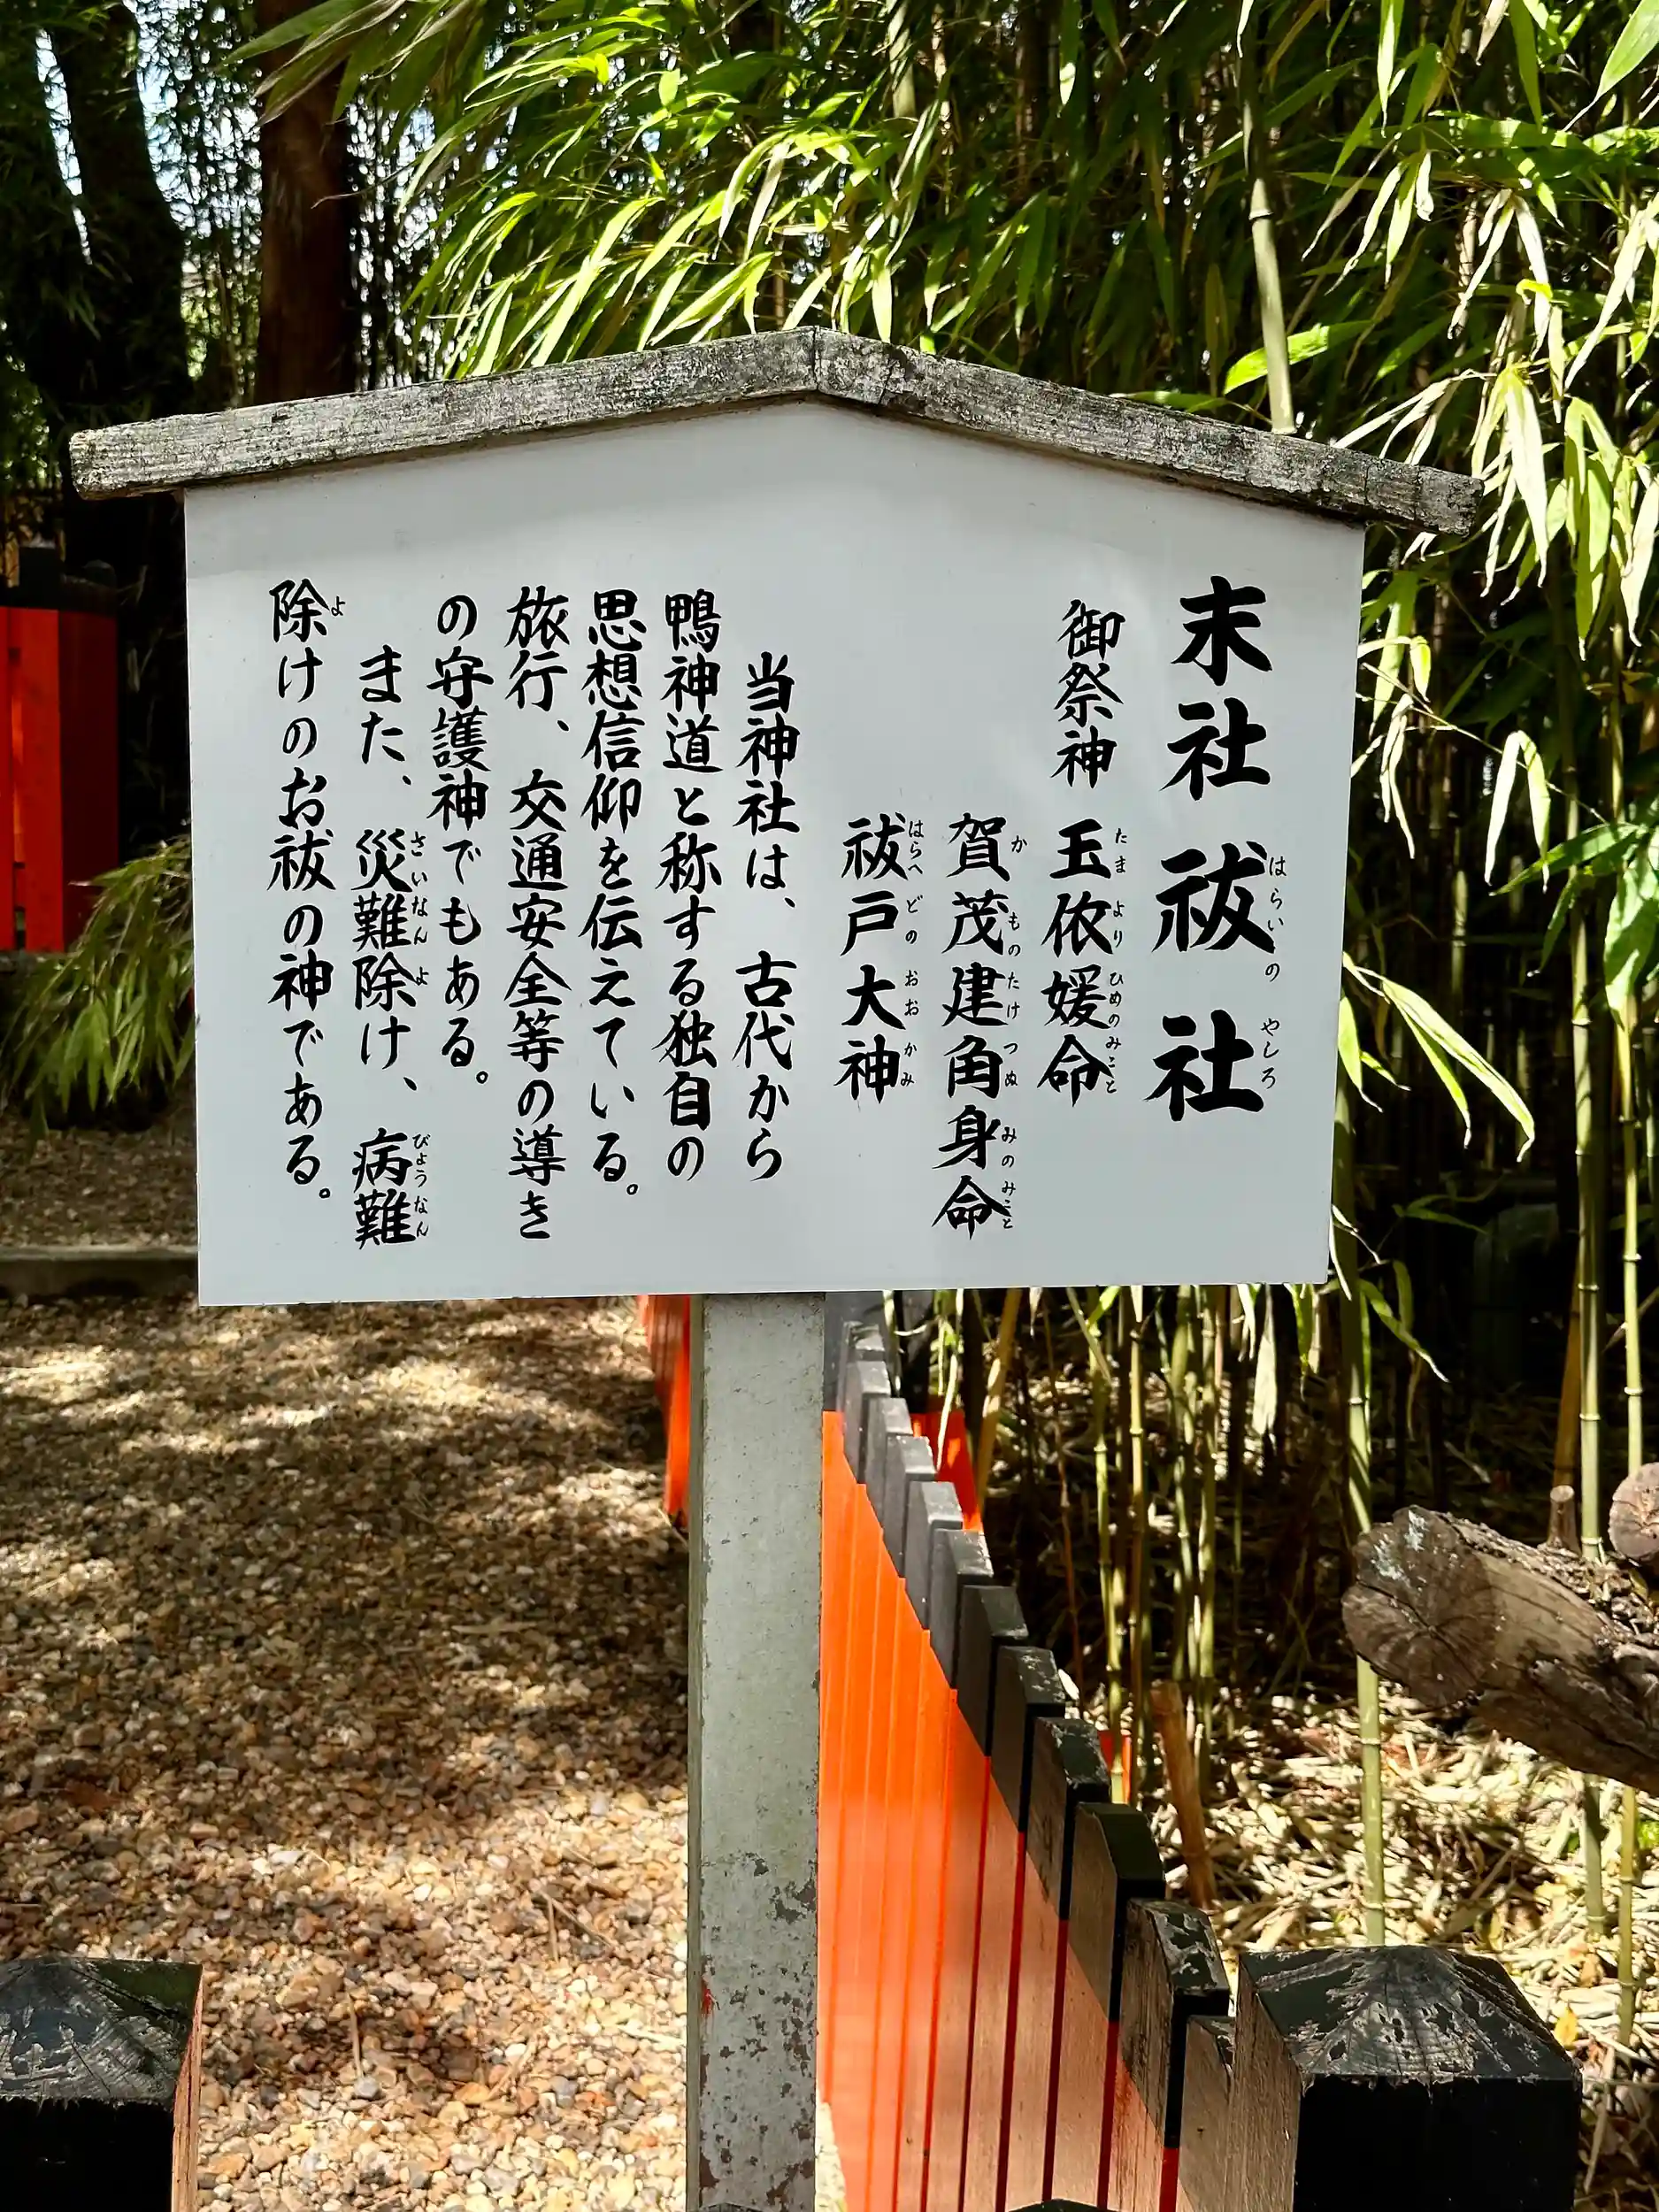 末社 祓社
はらいの やしろ
御祭神 玉依媛命
たまよりひめのみこと
賀茂建角身命
かものたけつぬみのみこと
祓戸大神
はらへどのおおかみ
当神社は、古代から
鴨神道と称する独自の
思想信仰を伝えている。
旅行、交通安全等の導き
の守護神でもある。
また、災難除け、病難
さいなんよ びょうなん
除けのお祓の神である。
よ